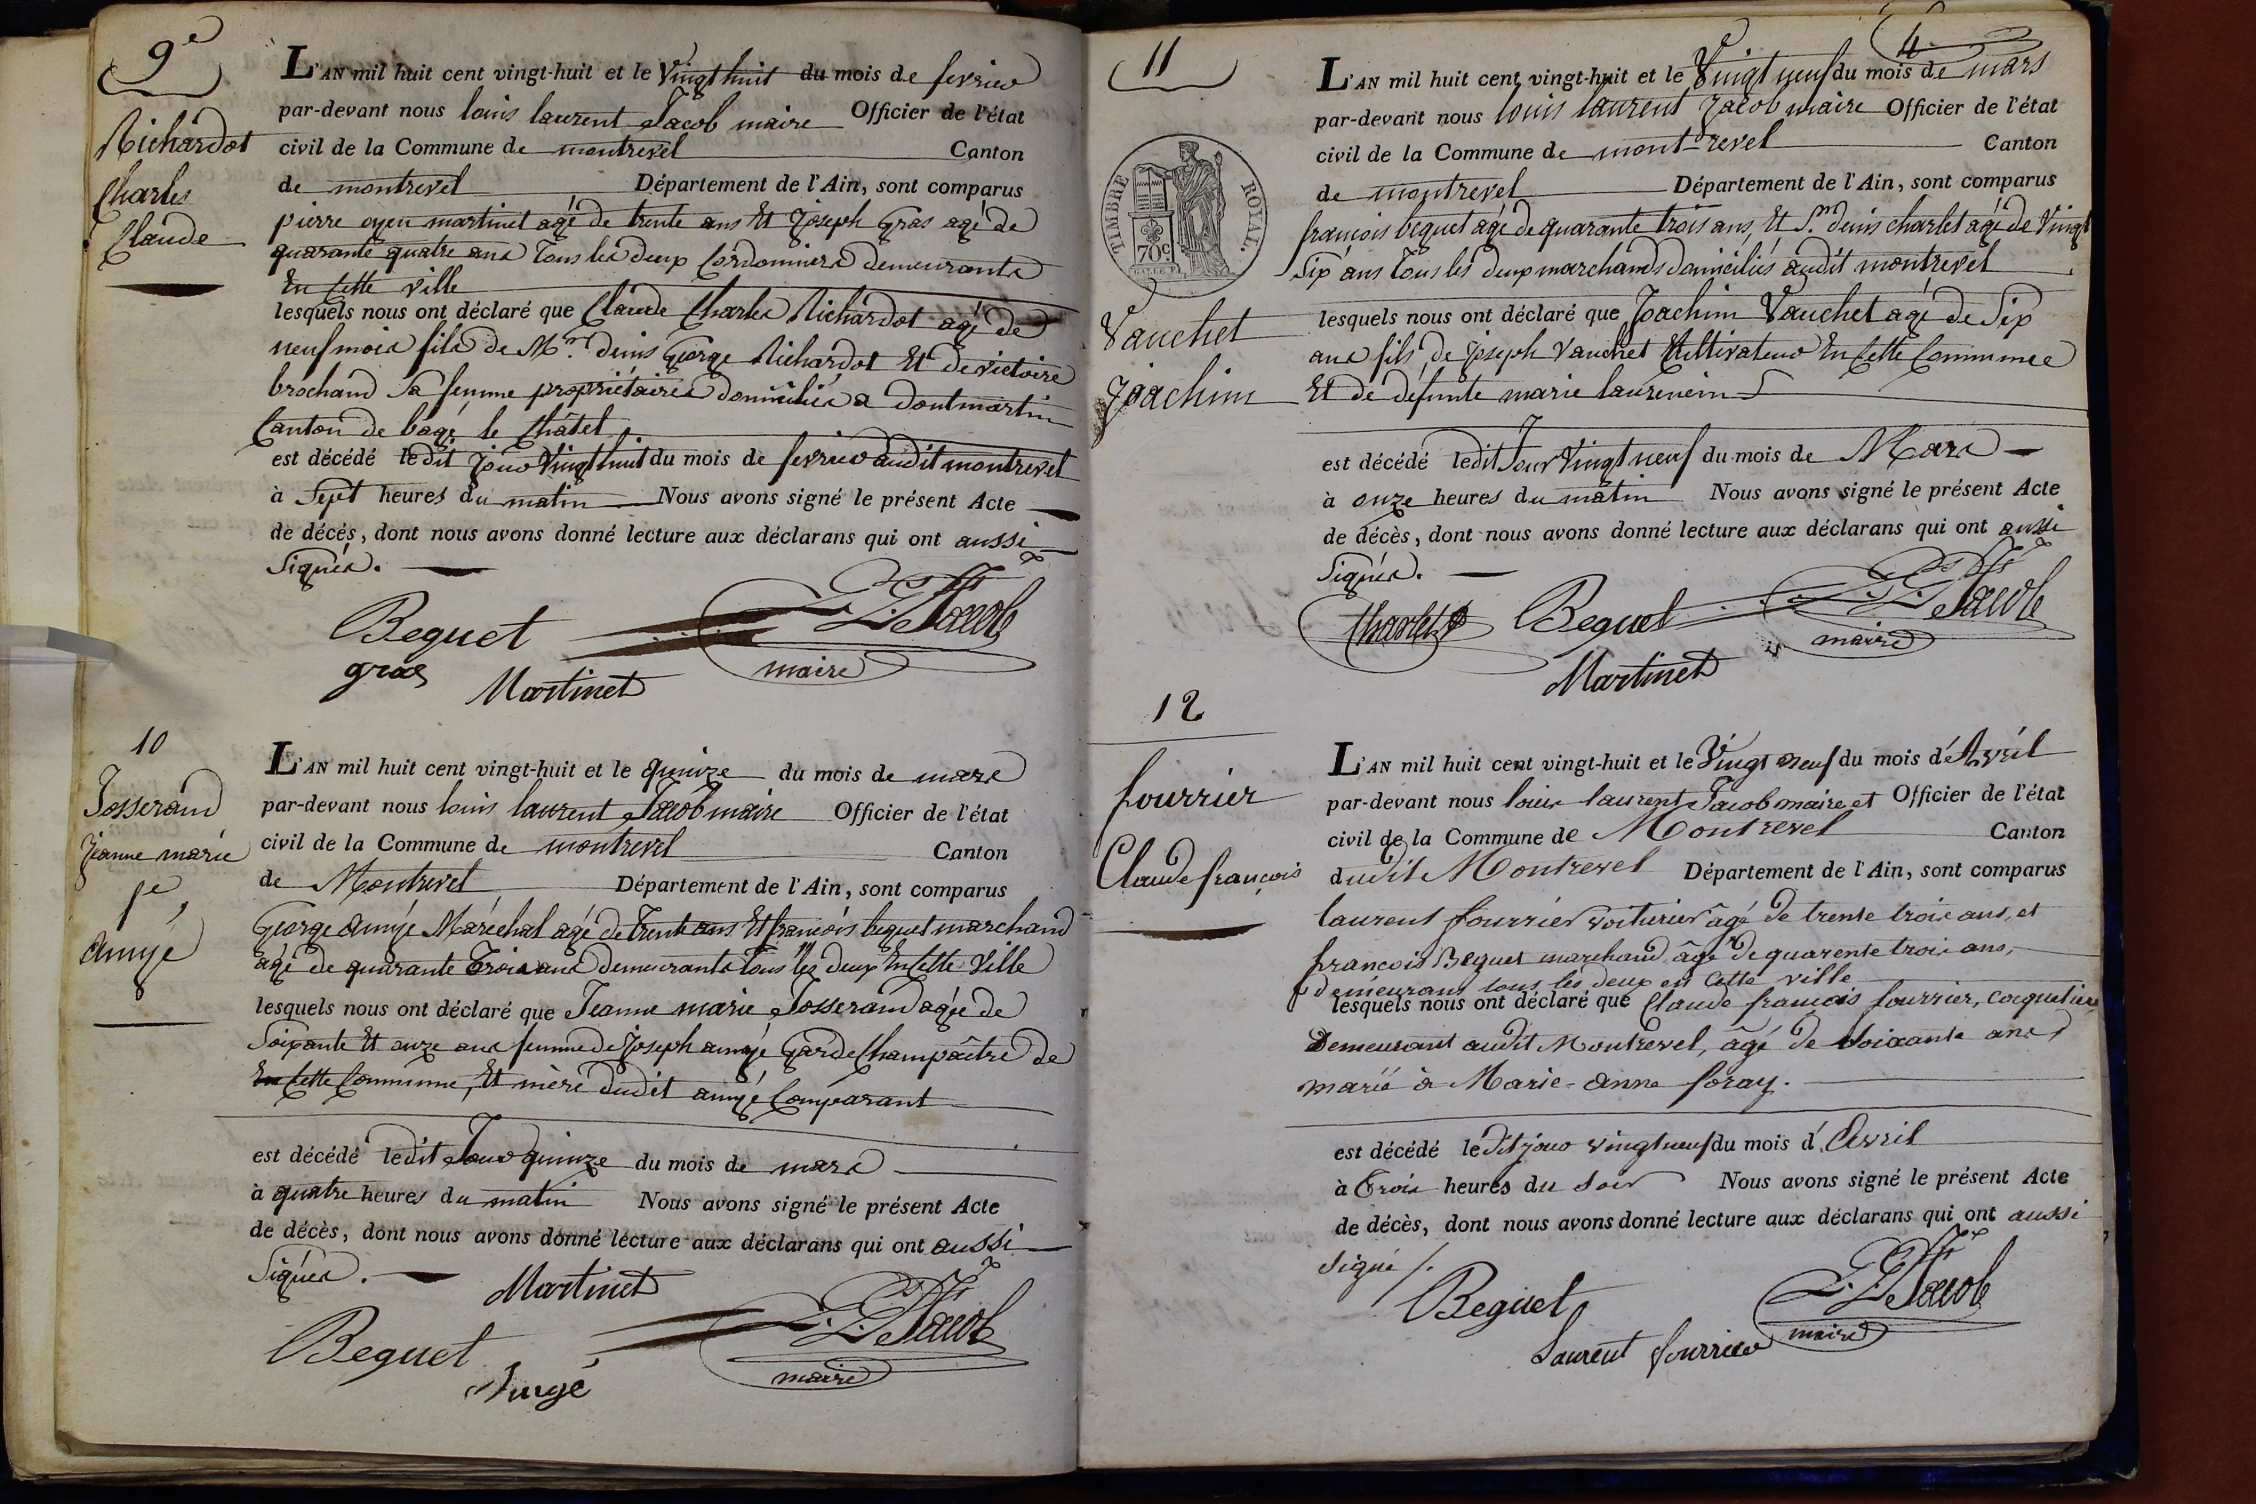 9e
Richardot
Charles
Claude
L'AN mil huit cent vingt-huit et le Vingt huit du mois de fevrier
par-devant nous louis laurent Jacob maire Officier de l'état
civil de la Commune de montrevel Canton
de montrevel Département de l'Ain, sont comparus
pierre oyen martinet agé de trente ans Et Joseph Gras agé de
quarante quatre ans Tous les deux Cordonniers demeurants
En Cette ville
lesquels nous ont déclaré que Claude Charles Richardot agé de
neuf mois fils de Mr. denis George Richardot Et de victoire
brochand sa femme propriétaires domiciliés a dontmartin
Canton de bagé le Châtel
est décédé ledit jour Vingt huit du mois de fevrier audit montrevel
à Sept heures du matin Nous avons signé le présent Acte
de décés, dont nous avons donné lecture aux déclarans qui ont aussi
Signés.
Beguet
L. L. Jacob
gras
Martinet
maire
10
Josserand
Jeanne marie
fe,
amyé
L'AN mil huit cent vingt-huit et le quinze du mois de mars
par-devant nous louis laurent Jacob maire Officier de l'état
civil de la Commune de montrevel Canton
de Montrevel Département de l'Ain, sont comparus
George amyé Maréchal agé de Trente ans Et francois beguet marchand
agé de quarante Trois ans demeurants Tous les deux En Cette Ville
lesquels nous ont déclaré que Jeanne marie Josserand agée de
Soixante Et onze ans femme de Joseph amyé Garde Champâtre de
En Cette Commune, Et mère dudit amyé Comparant
est décédé ledit Jour quinze du mois de mars
à quatre heures du matin Nous avons signé le présent Acte
de décès, dont nous avons donné lecture aux déclarans qui ont aussi
Signés.
Martinet
L. L. Jacob
Beguet
maire
11
4
TIMBRE ROYAL.
70c
Vauchet
Joachim
L'AN mil huit cent vingt-huit et le Vingt neuf du mois de mars
par-devant nous louis laurent Jacob maire Officier de l'état
civil de la Commune de mont-revel Canton
de montrevel Département de l'Ain, sont comparus
francois beguet agé de quarante trois ans, Et Sn. denis charlet agé de Vingt
Six ans Tous les deux marchands domiciliés audit montrevel
lesquels nous ont déclaré que Joachim Vauchet agé de Six
ans fils de Joseph Vauchet Cultivateur En Cette Commune
Et de défunte marie laurencin
est décédé ledit Jour Vingt neuf du mois de Mars
à onze heures du matin Nous avons signé le présent Acte
de décès, dont nous avons donné lecture aux déclarans qui ont aussi
Signés.
Charlet
Beguet
L. L. Jacob
maire
Martinet
12
fourrier
Claude françois
L'AN mil huit cent vingt-huit et le Vingt neuf du mois d'Avril
par-devant nous louis laurent Jacob maire et Officier de l'état
civil de la Commune de Montrevel Canton
dudit Montrevel Département de l'Ain, sont comparus
laurent fourrier voiturier âgé de trente trois ans, et
françois Beguet marchand âgé de quarente trois ans,
demeurans tous les deux en Cette ville
lesquels nous ont déclaré que Claude françois fourrier, coquetier
Demeurant audit Montrevel, âgé de Soixante ans
marié à Marie-anne foray.
est décédé ledit jour vingt neuf du mois d'Avril
à Trois heures du Soir Nous avons signé le présent Acte
de décès, dont nous avons donné lecture aux déclarans qui ont aussi
Signé /.
Beguet
L. L. Jacob
maire
Laurent fourrier